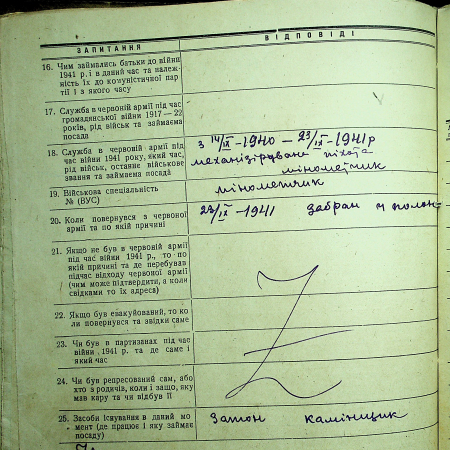 ЗАПИТАННЯ
ВІДПОВІДІ
16. Чим займались батьки до війни
1941 р. і в даний час та належ-
ність їх до комуністичної пар-
тії і з якого часу
17. Служба в червоній армії під час
громадянської війни 1917—22
років, рід військ та займаєма
посада
18. Служба в червоній армії під
час війни 1941 року, який час,
рід військ, останнє військове
звання та займаєма посада
з 14/IX-1940 – 23/IX-1941р
механізірувана піхота
міномечик
19. Військова спеціальність
№ (ВУС)
міномечик
20. Коли повернувся з червоної
армії та по якій причині
23/IX-1941 забран у полон
21. Якщо не був в червоній армії
під час війни 1941 р., то по
якій причині та де перебував
підчас відходу червоної армії
(чим може підтвердити, а коли
свідками то їх адреса)
22. Якщо був евакуйований, то ко
ли повернувся та звідки саме
23. Чи був в партизанах під час
війни, 1941 р. та де саме і
який час
24. Чи був репресований сам, або
хто з родичів, коли і защо, яку
мав кару та чи відбув її
25. Засоби існування в даний мо-
мент (де працює і яку займає
посаду)
Затон камінщик